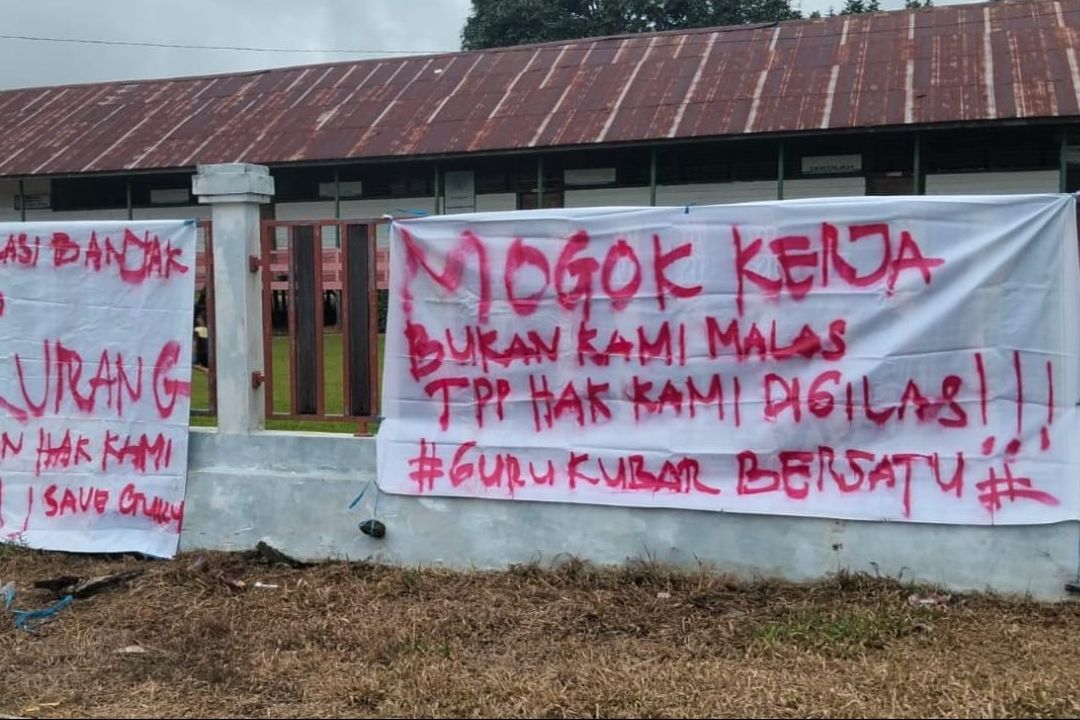 BANJAK
URANG
HAK KAMI
SAVE GURU
MOGOK KERJA
BUKAN KAMI MALAS
TPP HAK KAMI DIGILASI!!!
#GURU KUBAR BERSATU#
SEKOLAH